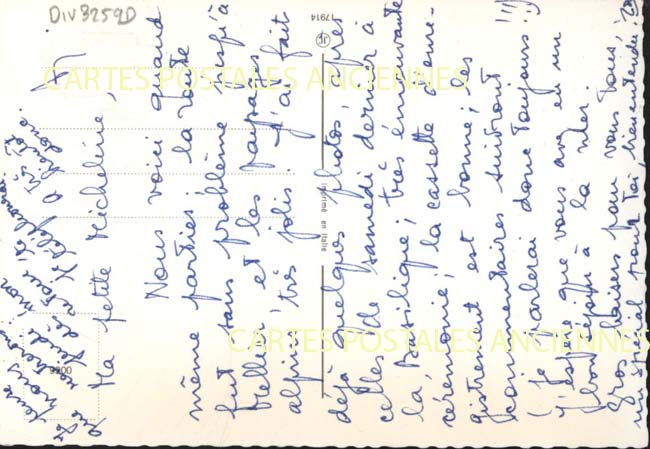 Div 3259D
17914
Imprimé en Italie
9200
CARTES POSTALES ANCIENNES
CARTES POSTALES ANCIENNES
Ma petite Micheline,
Nous voici quand
même parties ! la route
fut sans problème jusqu'à
et les paysages
alpins très jolis. J'ai fait
déjà quelques photos, près
celles de samedi dernier à
la Basilique ; très émouvante
cérémonie ; la cassette d'enre-
gistrement est bonne ; les
commentaires suivront !!!
(Je parlerai donc toujours !!)
J'espère que vous avez eu un
bon à la mer.
Gros baisers pour vous tous,
un spécial pour toi, bien entendu.
mon
Je téléphonerai
A très bientôt
donc.